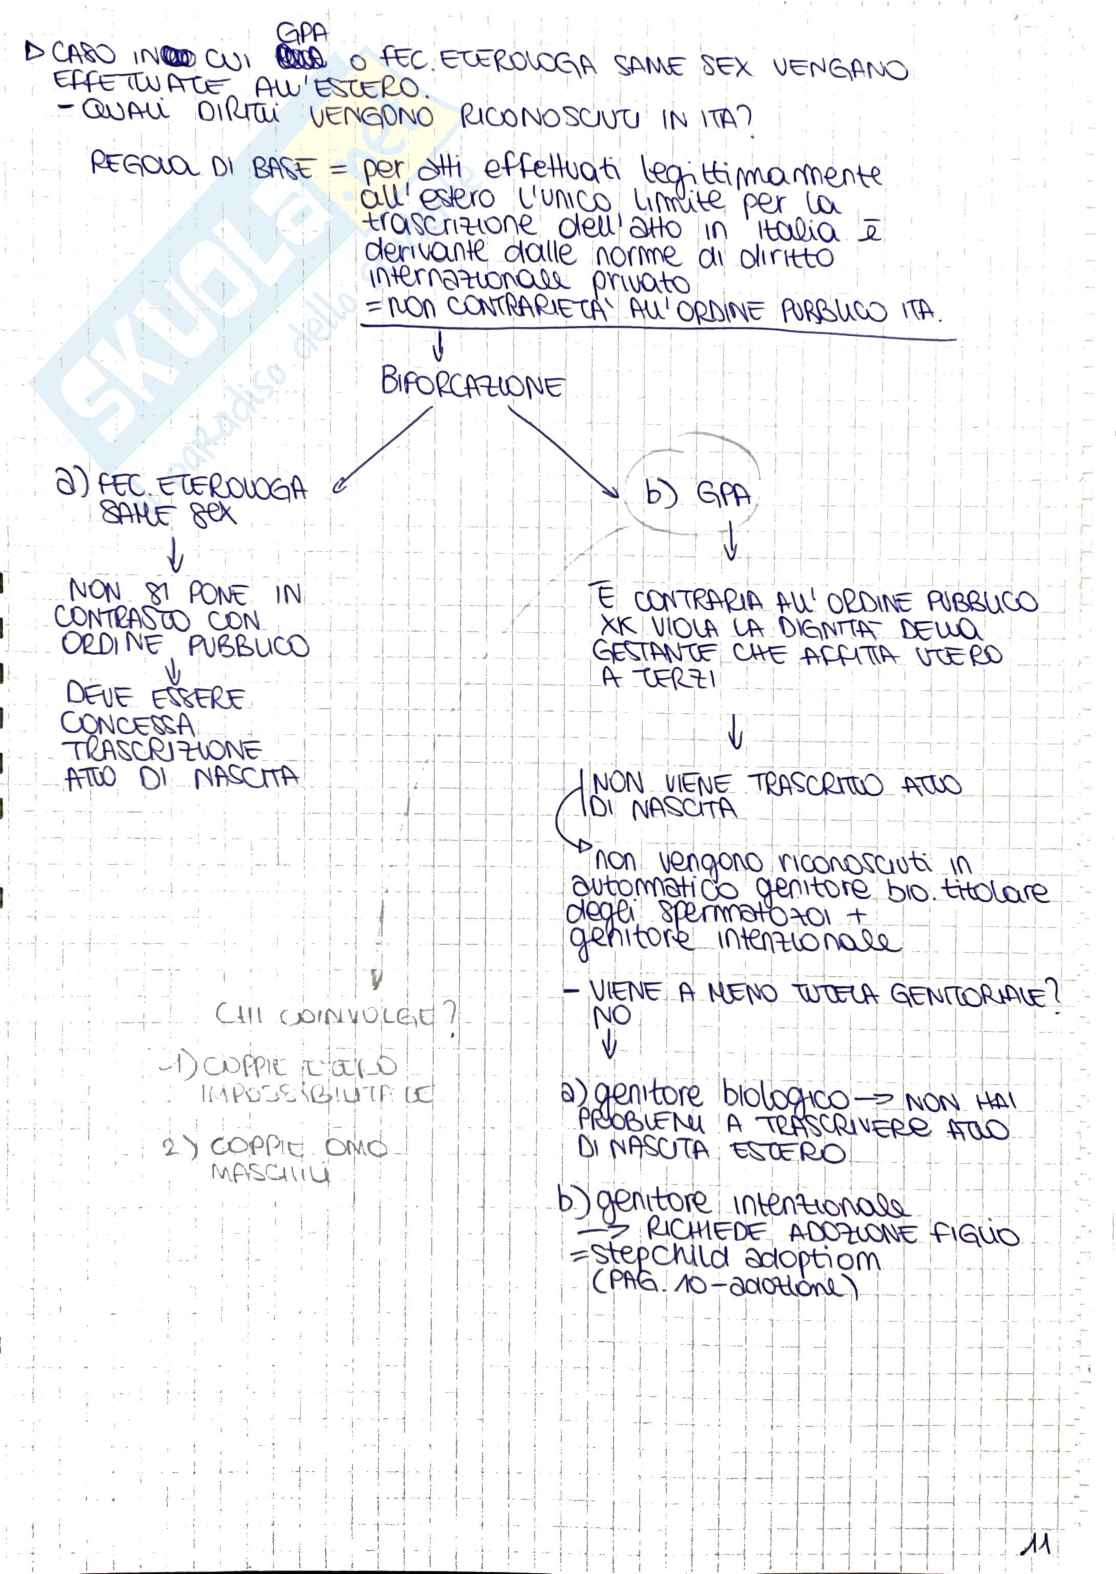 GPA
▷ CASO IN CUI O FEC. ETEROLOGA SAME SEX VENGANO
EFFETTUATE ALL'ESTERO.
- QUALI DIRITTI VENGONO RICONOSCIUTI IN ITA?
REGOLA DI BASE = per atti effettuati legittimamente
all'estero l'unico limite per la
trascrizione dell'atto in Italia è
derivante dalle norme di diritto
internazionale privato
= NON CONTRARIETÀ ALL'ORDINE PUBBLICO ITA.
↓
BIFORCAZIONE
a) FEC. ETEROLOGA
SAME SEX
↓
NON SI PONE IN
CONTRASTO CON
ORDINE PUBBLICO
↓
DEVE ESSERE
CONCESSA
TRASCRIZIONE
ATTO DI NASCITA
b) GPA
↓
È CONTRARIA ALL'ORDINE PUBBLICO
XK VIOLA LA DIGNITÀ DELLA
GESTANTE CHE AFFITTA UTERO
A TERZI
↓
NON VIENE TRASCRITTO ATTO
DI NASCITA
non vengono riconosciuti in
automatico genitore bio. titolare
degli spermatozoi +
genitore intenzionale
- VIENE A MENO TUTELA GENITORIALE?
NO
↓
a) genitore biologico → NON HAI
PROBLEMI A TRASCRIVERE ATTO
DI NASCITA ESTERO
b) genitore intenzionale
→ RICHIEDE ADOZIONE FIGLIO
= stepchild adoption
(PAG. 10 - adozione)
CHI COINVOLGE?
1) COPPIE ETERO
IMPOSSIBILITATE
2) COPPIE OMO
MASCHILI
11
SKUOLA.net
paradiso dello